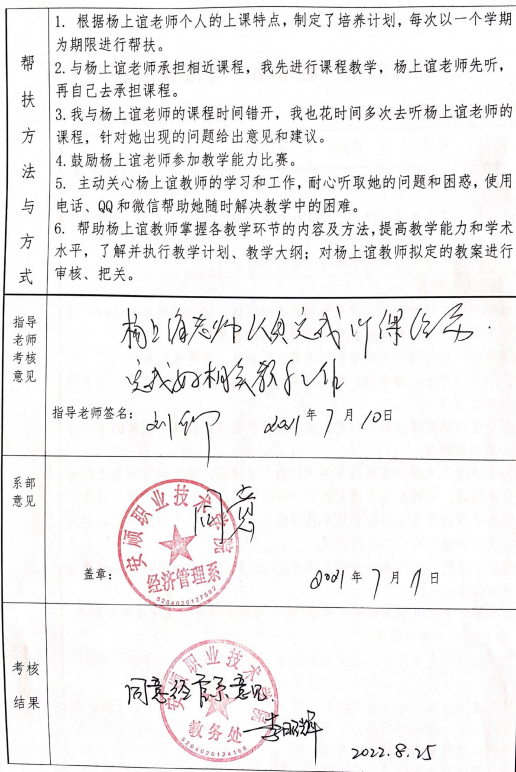 帮扶方法与方式
1. 根据杨上谊老师个人的上课特点，制定了培养计划，每次以一个学期
为期限进行帮扶。
2.与杨上谊老师承担相近课程，我先进行课程教学，杨上谊老师先听，
再自己去承担课程。
3.我与杨上谊老师的课程时间错开，我也花时间多次去听杨上谊老师的
课程，针对她出现的问题给出意见和建议。
4.鼓励杨上谊老师参加教学能力比赛。
5. 主动关心杨上谊教师的学习和工作，耐心听取她的问题和困惑，使用
电话、QQ和微信帮助她随时解决教学中的困难。
6. 帮助杨上谊教师掌握各教学环节的内容及方法，提高教学能力和学术
水平，了解并执行教学计划、教学大纲；对杨上谊教师拟定的教案进行
审核、把关。
指导
老师
考核
意见
杨上谊老师认真完成听课任务.
完成好相关教学工作
指导老师签名： 刘 2021年7月10日
系部
意见
同意
安顺职业技术学院
经济管理系
5204020127592
盖章： 2021年7月11日
考核
结果
安顺职业技术学院
同意经管系意见.
教务处
李昭辉
5204020124166
2022.8.25